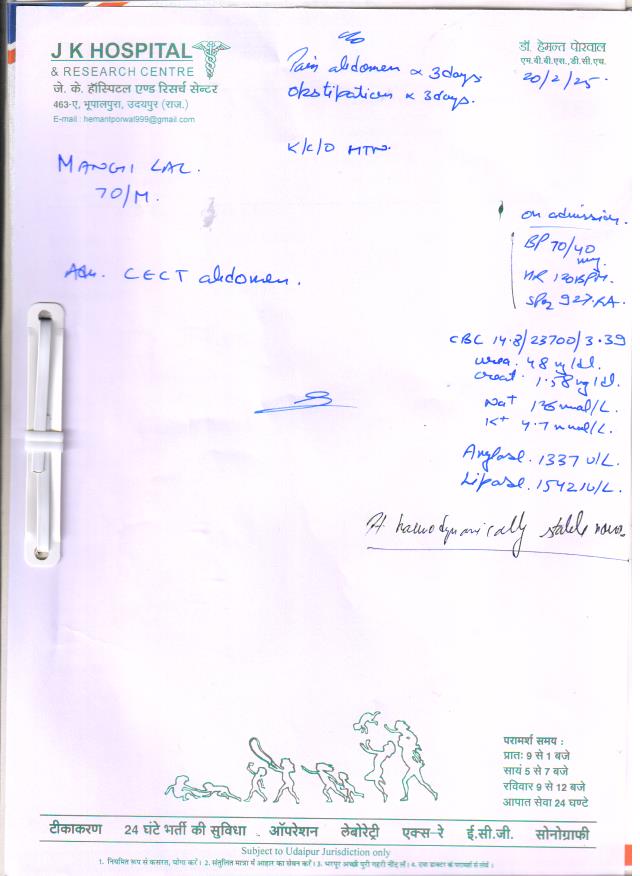 J K HOSPITAL
& RESEARCH CENTRE
जे. के. हॉस्पिटल एण्ड रिसर्च सेन्टर
463-ए, भूपालपुरा, उदयपुर (राज.)
E-mail : hemantporwal999@gmail.com
डॉ. हेमन्त पोरवाल
एम.बी.बी.एस., डी.सी.एच.
20/2/25
c/o
Pain abdomen x 3 days
Obstipation x 3 days.
K/C/O HTN.
MANGI LAL.
70/M.
on admission.
BP 70/40
HR 120 BPM.
SpO2 92% RA.
Adv. CECT abdomen.
CBC 14.8/23700/3.39
Urea. 48 mg/dl.
Creat. 1.58 mg/dl.
Na+ 136 mmol/L.
K+ 4.7 mmol/L.
Amylase. 1337 U/L.
Lipase. 1542 IU/L.
Pt haemodynamically stable now.
परामर्श समय :
प्रातः 9 से 1 बजे
सायं 5 से 7 बजे
रविवार 9 से 12 बजे
आपात सेवा 24 घण्टे
टीकाकरण 24 घंटे भर्ती की सुविधा . ऑपरेशन लेबोरेट्री एक्स-रे ई.सी.जी. सोनोग्राफी
Subject to Udaipur Jurisdiction only
1. नियमित रूप से कसरत, योगा करें। 2. संतुलित मात्रा में आहार का सेवन करें। 3. भरपूर अच्छी पूरी गहरी नींद लें। 4.